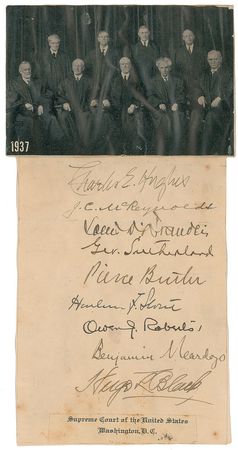 1937
Charles E. Hughes
J. C. McReynolds
Louis D. Brandeis
Geo. Sutherland
Pierce Butler
Harlan F. Stone
Owen J. Roberts
Benjamin N Cardozo
Hugo L Black
Supreme Court of the United States
Washington, D.C.